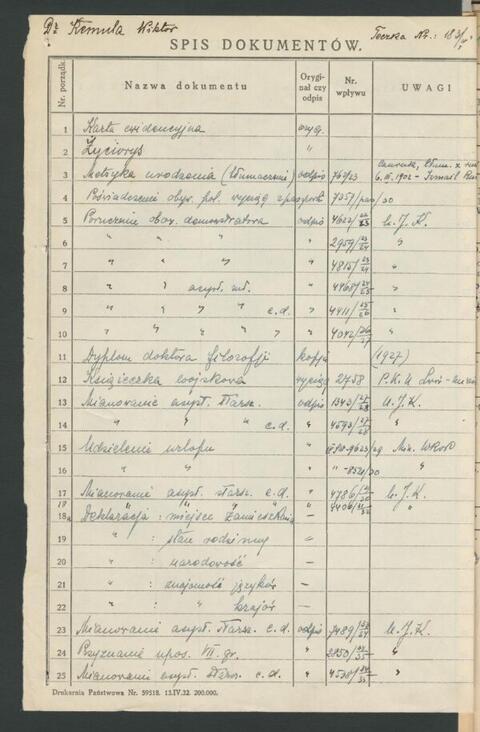 Dr Kemula Wiktor
Teczka Nr.: 183/
SPIS DOKUMENTÓW.
Nr. porządk. Nazwa dokumentu Orygi- nał czy odpis Nr. wpływu UWAGI
1 Karta ewidencyjna oryg.
2 Życiorys "
3 Metryka urodzenia (tłumaczenie) odpis 769/23 6.III.1902 - Ismaił
4 Poświadczenie obyw. pol. wyciąg z paszportu 7357/pas/30
5 Poruczenie obow. demonstratora odpis 4622/22/23 U.J.K.
6 " " " " 2959/23/24 "
7 " " " " 4815/23/24 "
8 " " asyst. mł. " 4468/24/25 "
9 " " " c.d. " 4411/25/26 "
10 " " " " " 4042/26/27 "
11 Dyplom doktora filozofji kopja (1927)
12 Książeczka wojskowa wyciąg 2758 P.K.U
13 Mianowanie asyst. starsz. odpis 1343/27/28 U.J.K.
14 " " " c.d. " 4593/27/28 "
15 Udzielenie urlopu 9623/29 Min. WRiOP
16 " " " -852/30 "
17 Mianowanie asyst. starsz. c.d. " 4786/ U.J.K.
18 " " 7406/ "
18a Deklaracja: miejsce zamieszkania —
19 " : stan rodzinny =
20 " : narodowość —
21 " : znajomość języków —
22 " : " krajów —
23 Mianowanie asyst. starsz. c.d. odpis 7489/ U.J.K.
24 Przyznanie upos. VII. gr. " 2850/ "
25 Mianowanie asyst. starsz. c.d. " 4538/ "
Drukarnia Państwowa Nr. 59518. 13.IV.32. 200.000.